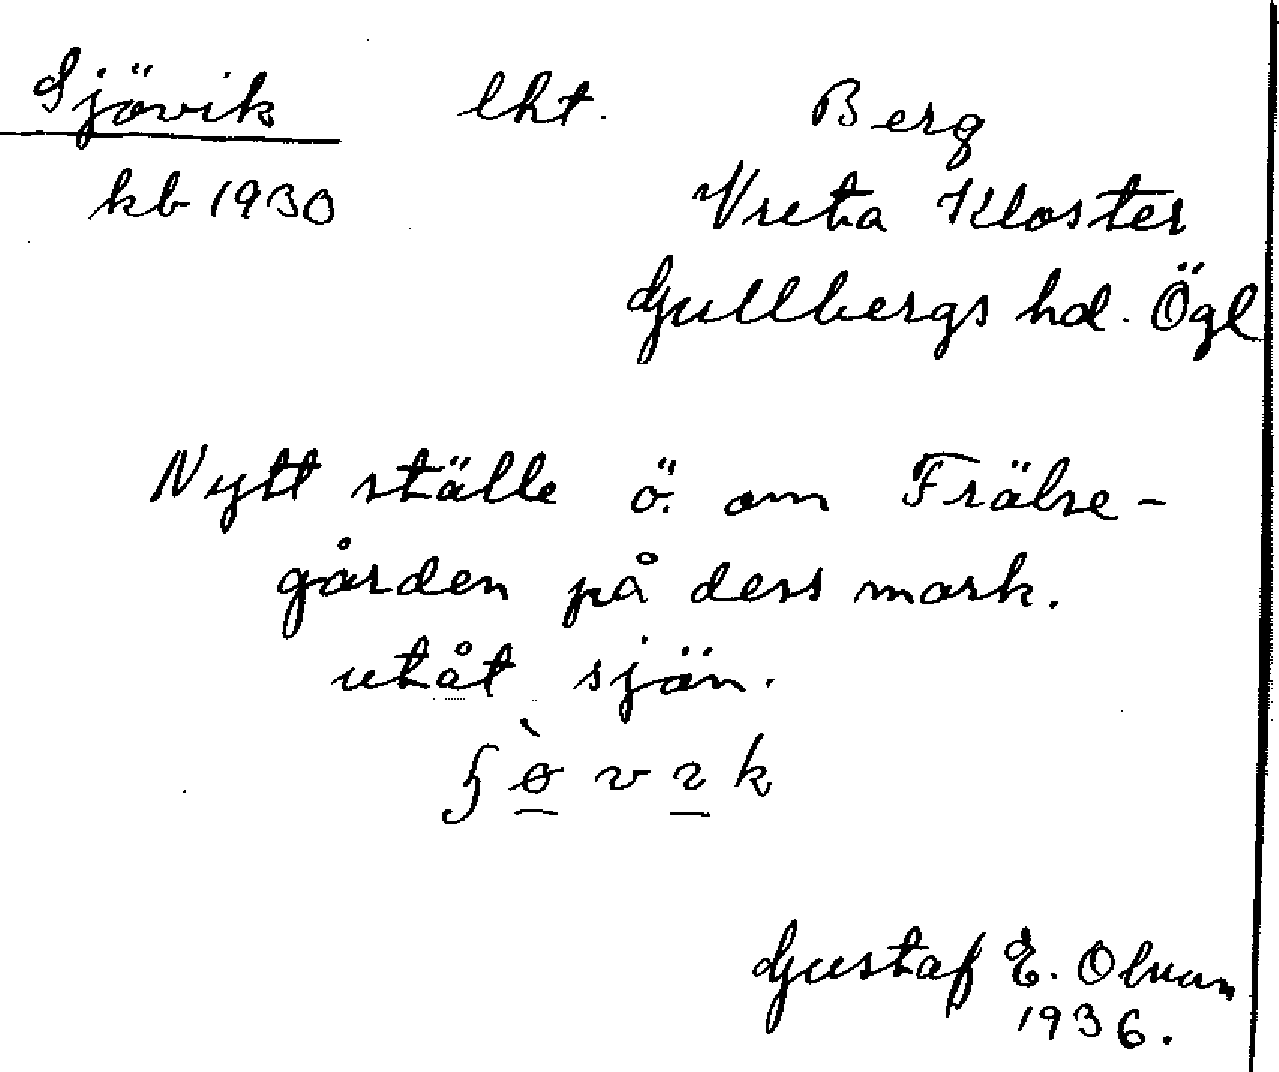 Sjövik lht. Berg
kb 1930 Vreta Kloster
Gullbergs hd. Ögl
Nytt ställe ö. om Frälse-
gården på dess mark.
utåt sjön.
Gustaf E. Olsson
1936.